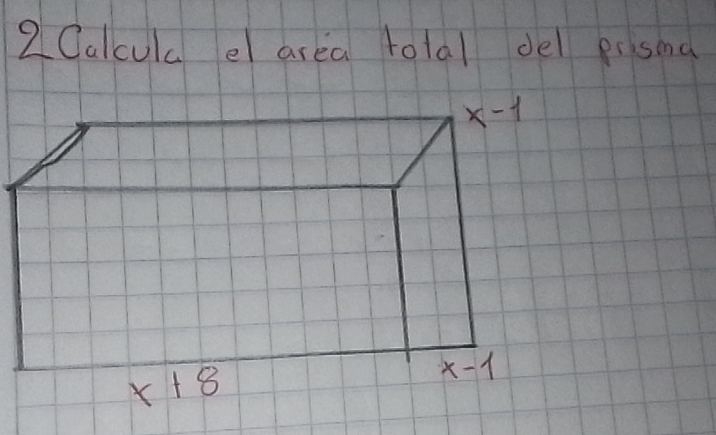 2 Calcula el area total del prisma
x-1
x-1
x+8